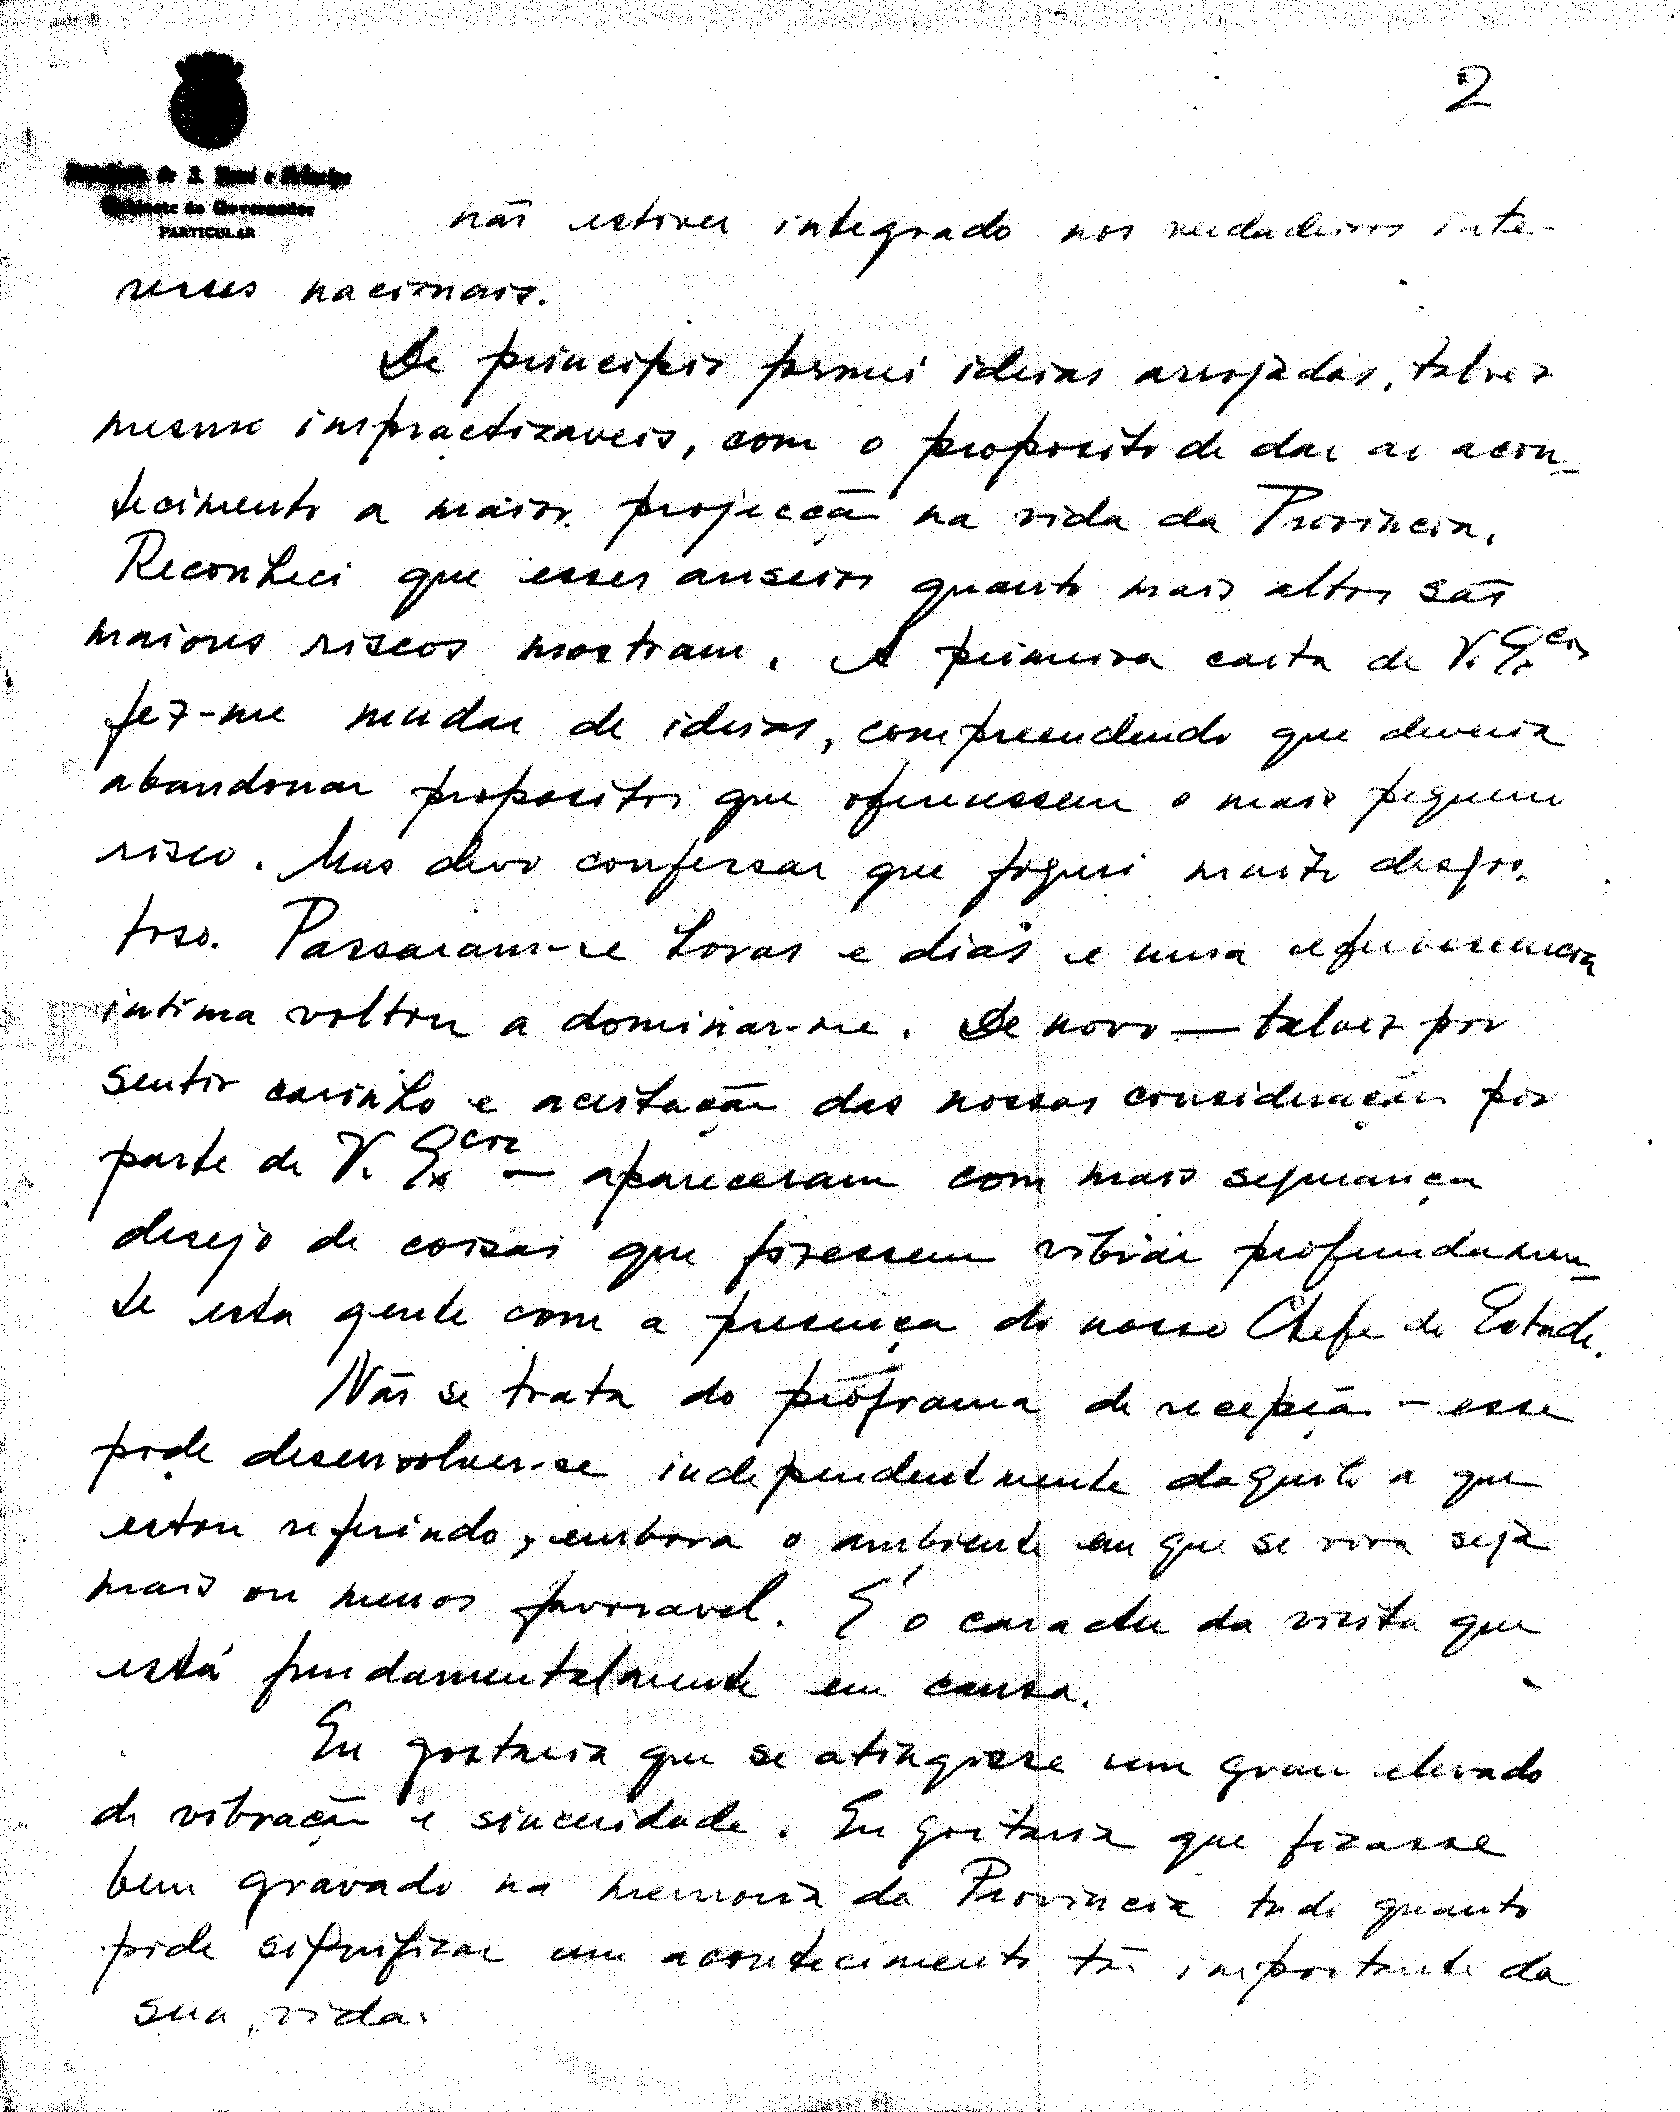 2
Província de S. Tomé e Príncipe
Gabinete do Governador
PARTICULAR
não estiver integrado nos verdadeiros inte-
resses nacionais.
De principio formei ideias arrojadas, talvez
mesmo impracticaveis, com o proposito de dar ao acon-
tecimento a maior projecção na vida da Provincia.
Reconheci que esses anseios quanto mais altos são
maiores riscos mostram. A primeira carta de V. Excia
fez-me mudar de ideias, compreendendo que deveria
abandonar propositos que oferecessem o mais pequeno
risco. Mas devo confessar que fiquei muito desgos-
toso. Passaram-se horas e dias e uma efervescencia
intima voltou a dominar-me. De novo — talvez por
sentir carinho e aceitação das nossas consideração por
parte de V. Excia — apareceram com mais segurança
desejo de coisas que fizessem vibrar profundamen-
te esta gente com a presença do nosso Chefe de Estado.
Não se trata do programa de recepção - esse
pode desenvolver-se independentmente daquilo a que
estou referindo, embora o ambiente em que se viva seja
mais ou menos favoravel. É o caracter da visita que
está fundamentalmente em causa.
Eu gostaria que se atingisse um grau elevado
de vibração e sinceridade. Eu gostaria que ficasse
bem gravado na memoria da Provincia tudo quanto
pode significar um acontecimento tão importante da
sua vida.